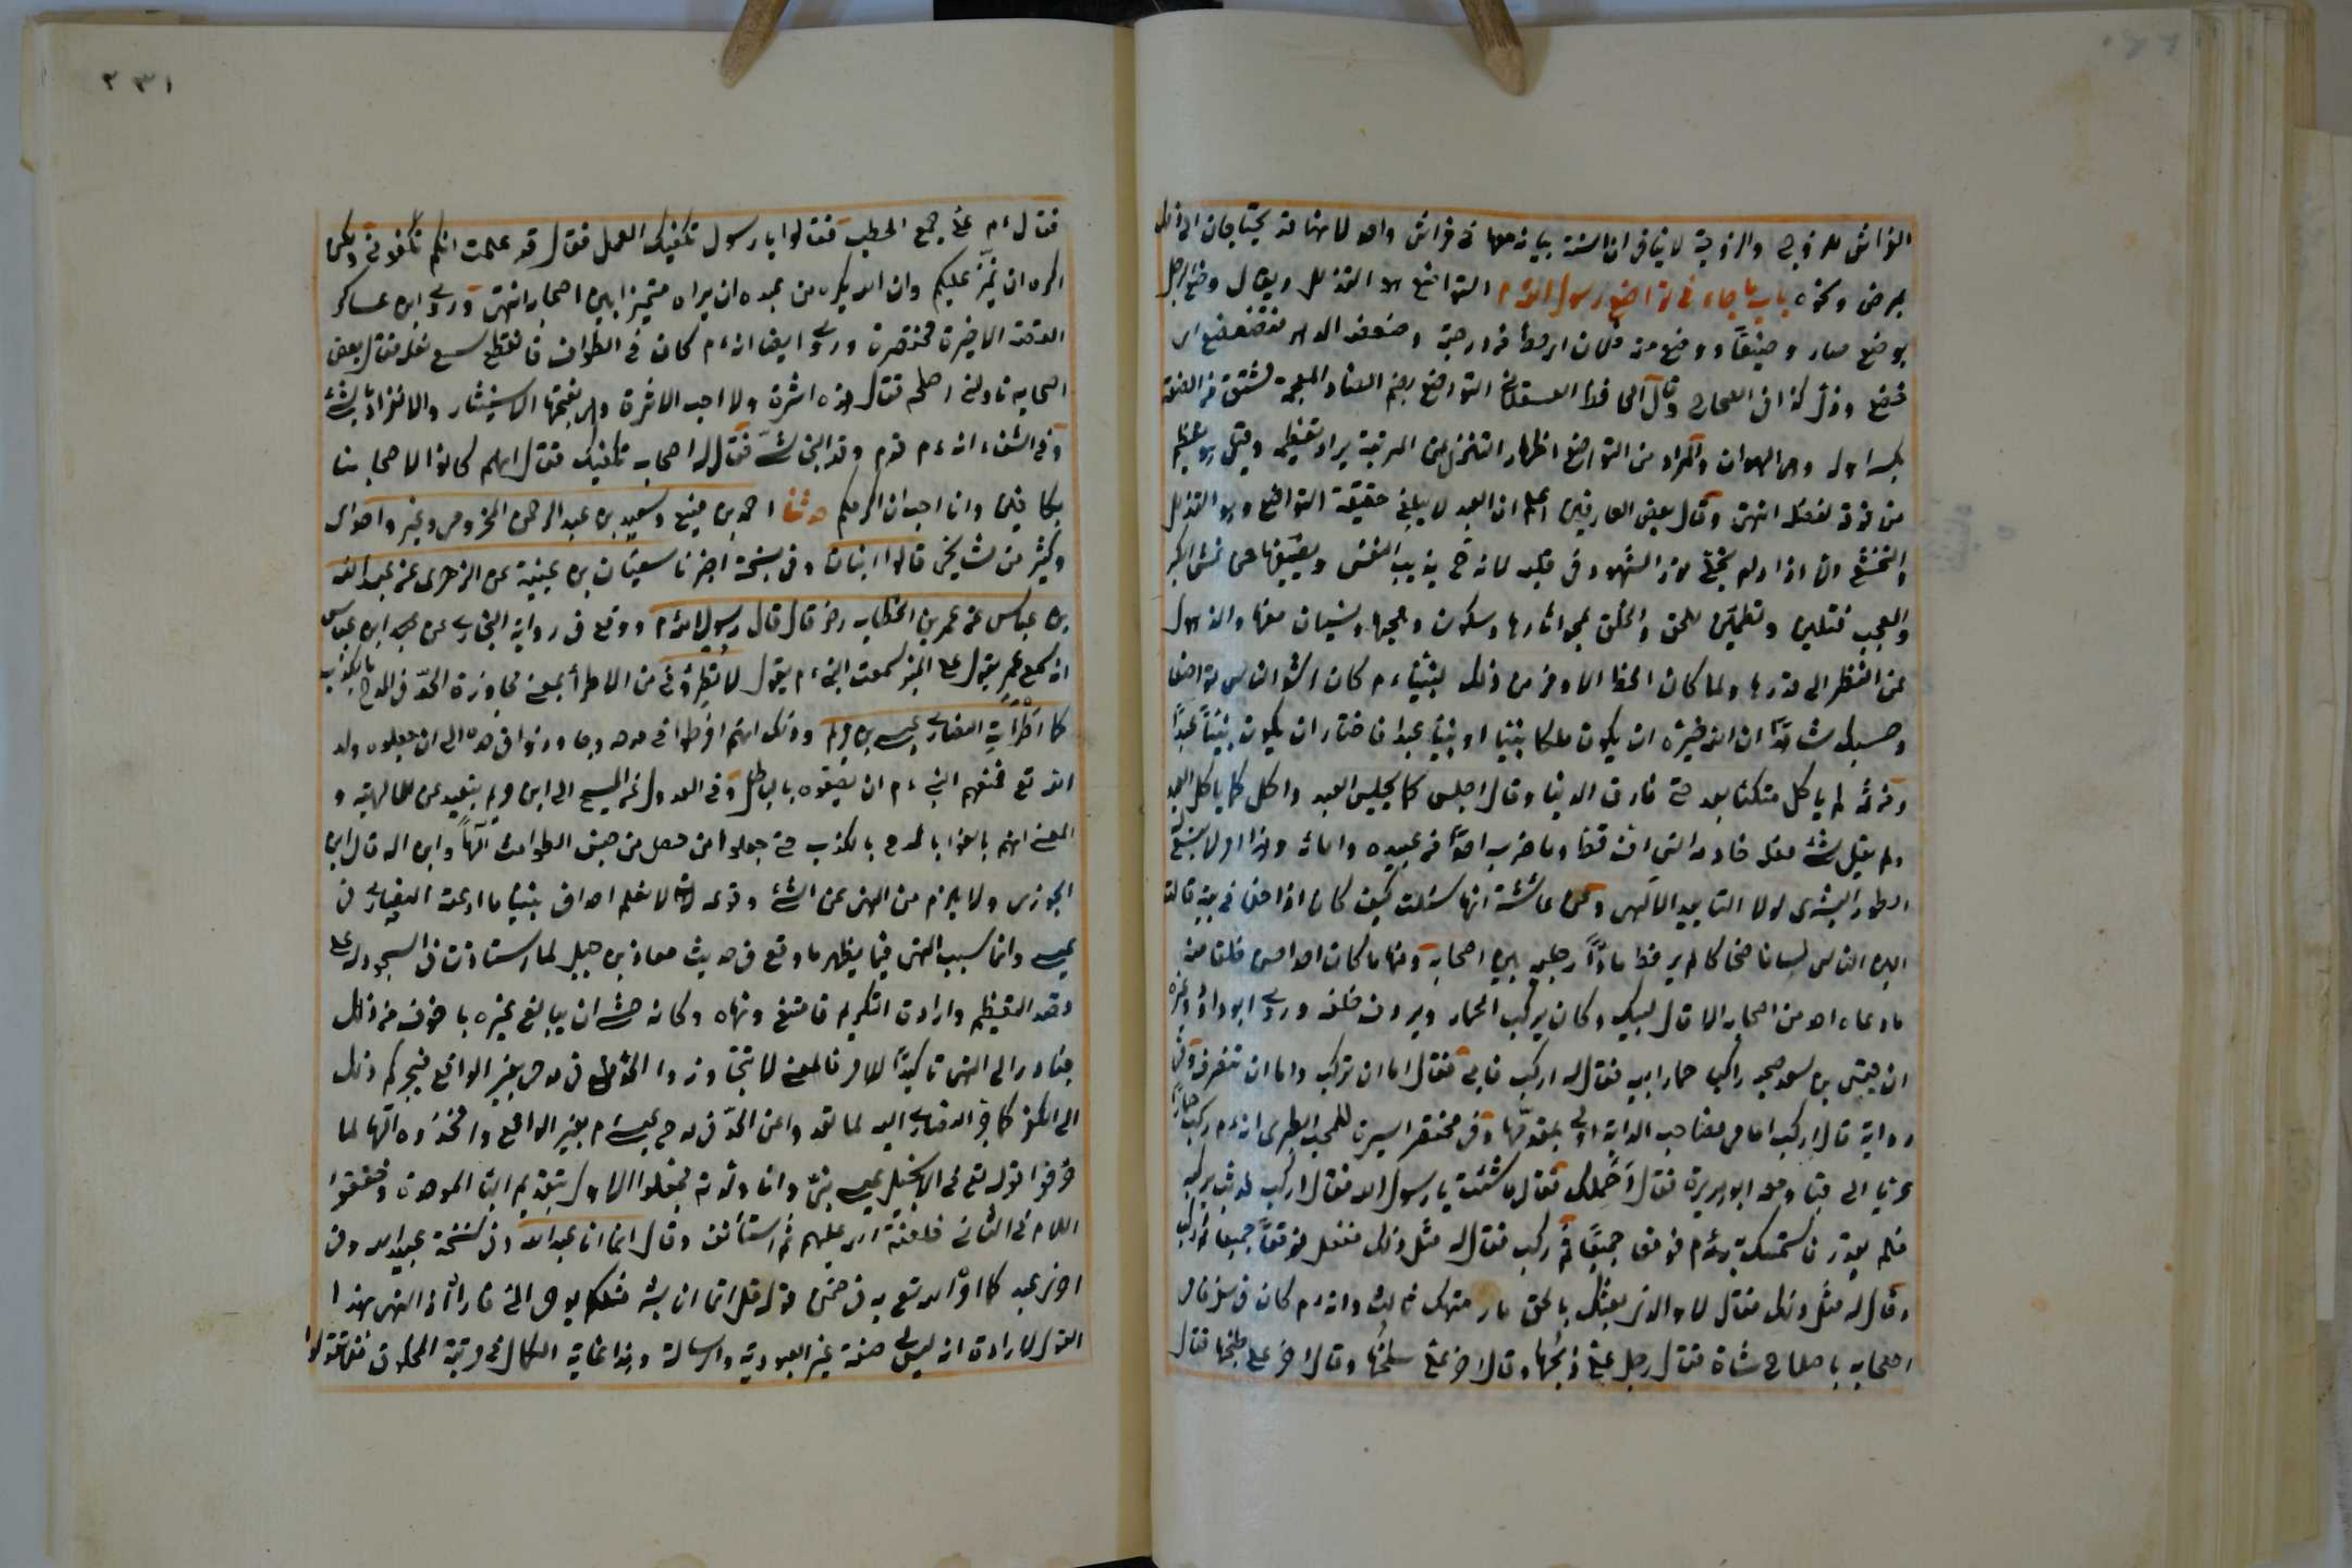 الفراش للزوج والزوجة لا ينافي ان السنة بياته معها في فراش واحد لانهما قد يحتاجان الى ذلك
بمرض ونحوه باب ما جاء في تواضع رسول الله م التواضع هو التذلل ويقال وضع الرجل
يوضع صار وضيعا ووضع منه فلان اي حط من درجته وضعضعه الدهر فتضعضع اي
خضع وذل كذا في الصحاح وقال الحافظ العسقلاني التواضع بضم الضاد المعجمة مشتق من الضعة
بكسر اوله وهي الهوان والمراد من التواضع اظهار التنزل عن المرتبة يراد تعظيمه وقيل هو تعظيم
من فوقه لفضله انتهى وقال بعض العارفين اعلم ان العبد لا يبلغ حقيقة التواضع وهو التذلل
والتخشع الا اذا دام تجلي نور الشهود في قلبه لانه ح يذيب النفس ويصفيها عن غش الكبر
والعجب فتلين وتطمئن للحق والخلق بمحو اثارها وسكون وهجها ونسيان حقها والذهول
عن النظر الى قدرها ولما كان الحظ الاوفر من ذلك لنبينا ءم كان اشد الناس تواضعا
وحسبك شاهدا ان الله خيره ان يكون ملكا نبيا او نبيا عبدا فاختار ان يكون نبيا عبدا
ومن ثم لم ياكل متكئا بعد حتى فارق الدنيا وقال اجلس كما يجلس العبد واكل كما ياكل العبد
ولم يقل لشئ فعله خادمه انس اف قط وما ضرب احدا من عبيده وامائه وهذا امر لا يتسع له
الطور البشري لولا التاييد الالهي وعن عائشة انها سئلت كيف كان اذا خلا في بيته قالت
الين الناس بساما ضحاكا لم ير قط مادا رجليه بين اصحابه وعنها ما كان احد احسن خلقا منه
ما دعاه احد من اصحابه الا قال لبيك وكان يركب الحمار ويردف خلفه وروى ابو داود وغيره
ان قيس بن سعد صحبه راكبا حمار ابيه فقال له اركب فابى فقال اما ان تركب واما ان تنصرف وفي
رواية قال اركب امامي فصاحب الدابة اولى بمقدمها وفي مختصر السيرة للمحب الطبري انه ءم ركب حمارا
عريا الى قبا ومعه ابو هريرة فقال احملك فقال ما شئت يا رسول الله فقال اركب فوثب ليركب
فلم يقدر فاستمسك به ءم فوقعا جميعا ثم ركب فقال له مثل ذلك ففعل فوقعا جميعا ثم ركب
وقال له مثل ذلك فقال لا والذي بعثك بالحق ما رميتك ثالثا وانه ءم كان في سفر فامر
اصحابه باصلاح شاة فقال رجل علي ذبحها وقال اخر علي سلخها وقال اخر علي طبخها فقال
٢٣١
فقال ءم علي جمع الحطب فقالوا يا رسول نكفيك العمل فقال قد علمت انكم تكفوني ولكن
اكره ان تميز عليكم وان الله يكره من عبده ان يراه متميزا بين اصحابه انتهى وروى ابن عساكر
القصة الاخيرة مختصرة وروى ايضا انه ءم كان في الطواف فانقطع شسع نعله فقال بعض
اصحابه ناولني اصلحه فقال هذه اثرة ولا احب الاثرة وهي بفتحها الاستيثار والانفراد بالشئ
وفي الشفاء انه ءم قدم وفد النجاشي فقال له اصحابه نكفيك فقال انهم كانوا لاصحابنا
مكافئين وانا احب ان اكرمهم حدثنا احمد بن منيع وسعيد بن عبد الرحمن المخزومي وغير واحد اي
وكثير من مشايخي قالوا انبانا وفي نسخة اخبرنا سفيان بن عيينة عن الزهري عن عبيد الله
بن عباس عن عمر بن الخطاب رض قال قال رسول الله م ووقع في رواية البخاري عن ابن عباس
انه سمع عمر يقول على المنبر سمعت النبي ءم يقول لا تطروني من الاطراء بمعنى مجاوزة الحد في المدح بالكذب
كما اطرأت النصارى عيسى بن مريم وذلك انهم افرطوا في مدحه وجاوزوا في حده الى ان جعلوه ولد
الله تع فمنعهم النبي ءم ان يصفوه بالباطل وفي العدول عن المسيح الى ابن مريم تبعيد عن الالهية و
المعنى انهم بالغوا بالمدح بالكذب حتى جعلوا من حصل من جنس الطوامث الها وابن اله قال ابن
الجوزي ولا يلزم من النهي عن الشئ وقوعه لانا لا نعلم احدا في نبينا ما ادعته النصارى في
عيسى وانما سبب النهي فيما يظهر ما وقع في حديث معاذ بن جبل لما استاذن في السجود له على
قصد التعظيم وارادة التكريم فامتنع ونهاه وكانه خشي ان يبالغ غيره بما هو فوق ذلك
فبادر الى النهي تاكيدا للامر فالمعنى لا تتجاوزوا الحد في مدحي بغير الواقع فيجركم ذلك
الى الكفر كما جر النصارى اليه لما تعدوا عن الحد في مدح عيسى ءم بغير الواقع واتخذوه الها لما
حرفوا قوله تع في الانجيل عيسى نبي وانا ولدته فجعلوا الاول بتقديم الباء الموحدة وخففوا
اللام في الثاني فلعنة الله عليهم ثم استأنف وقال انما انا عبد الله وفي نسخة عبد الله وفي
اخرى عبد كما امر الله تع به في ضمن قوله قل انما انا بشر مثلكم يوحى الي فاراد النهي بهذا
القول لارادة انه ليس لي صفة غير العبودية والرسالة وهذا غاية الكمال في مرتبة المخلوق فقولوا